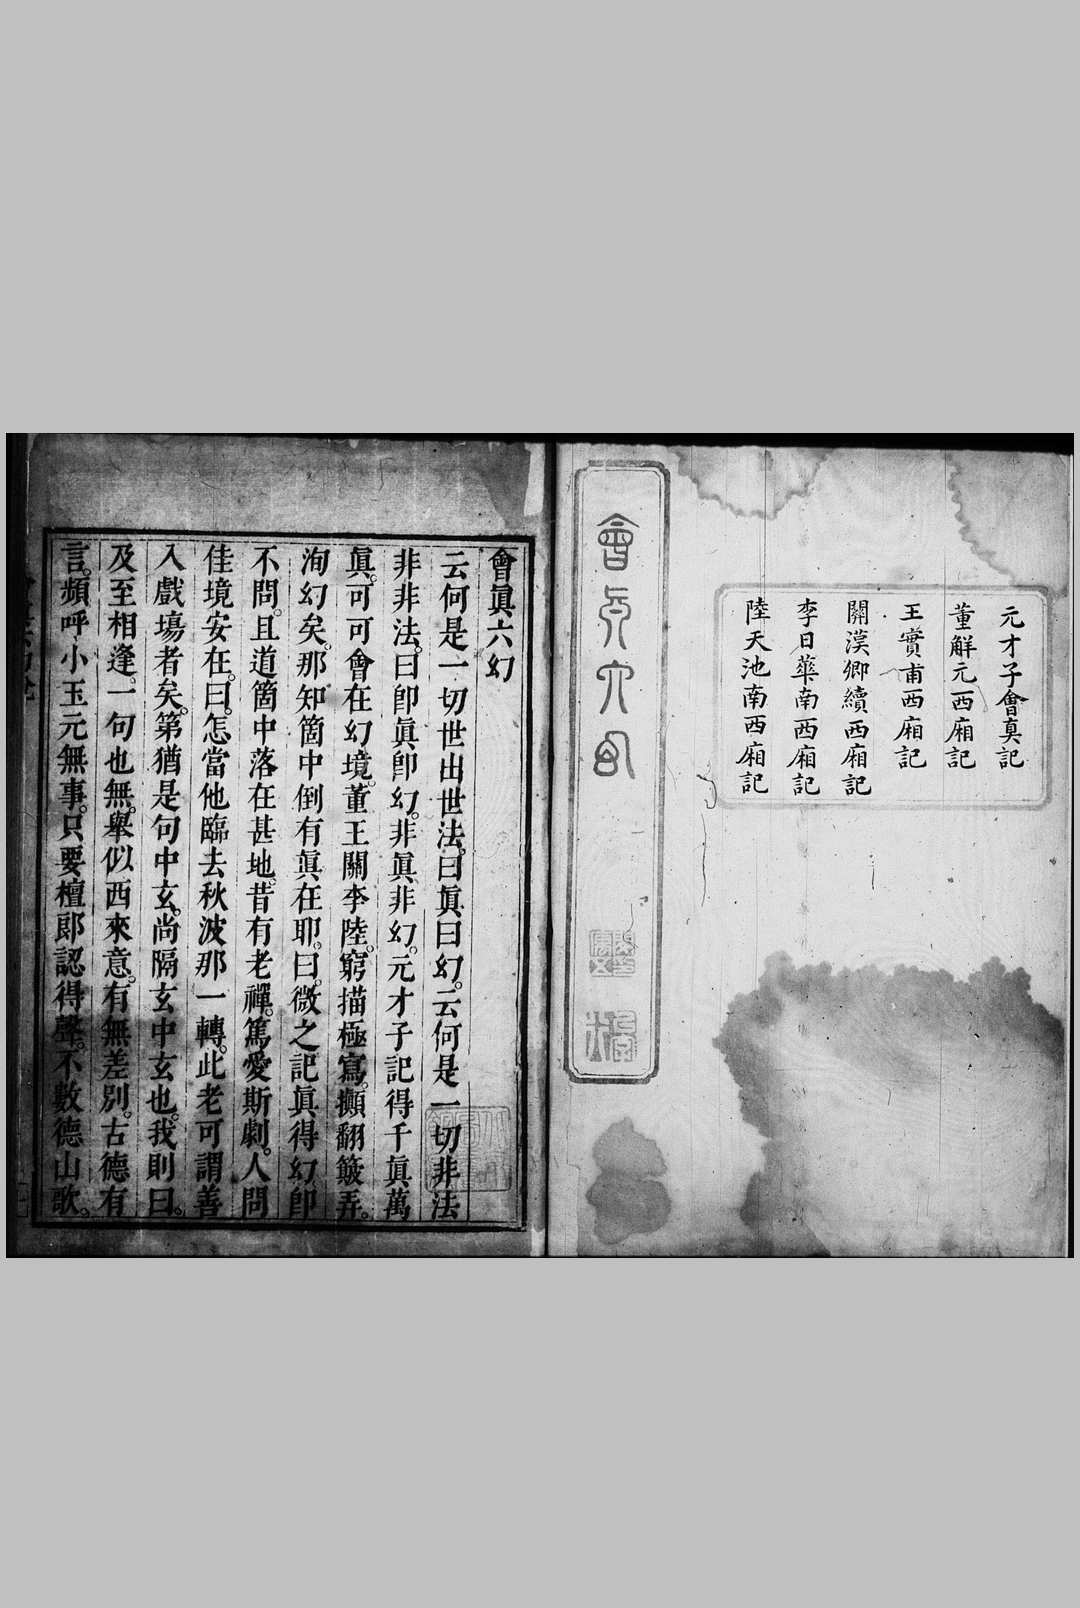 元才子會真記
董解元西廂記
王實甫西廂記
關漢卿續西廂記
李日華南西廂記
陸天池南西廂記
會真六幻
會眞六幻
云何是一切世出世法。曰眞曰幻。云何是一切非法
非非法。曰卽眞卽幻。非眞非幻。元才子記得千眞萬
眞。可可會在幻境。董王關李陸。窮描極寫。攧翻簸弄。
洵幻矣。那知箇中倒有眞在耶。曰。微之記眞得幻卽
不問。且道箇中落在甚地。昔有老禪。篤愛斯劇。人問
佳境安在。曰。怎當他臨去秋波那一轉。此老可謂善
入戲塲者矣。第猶是句中玄。尚隔玄中玄也。我則曰。
及至相逢。一句也無。舉似西來意。有無差別。古德有
言。頻呼小玉元無事。只要檀郎認得聲。不數德山歌。